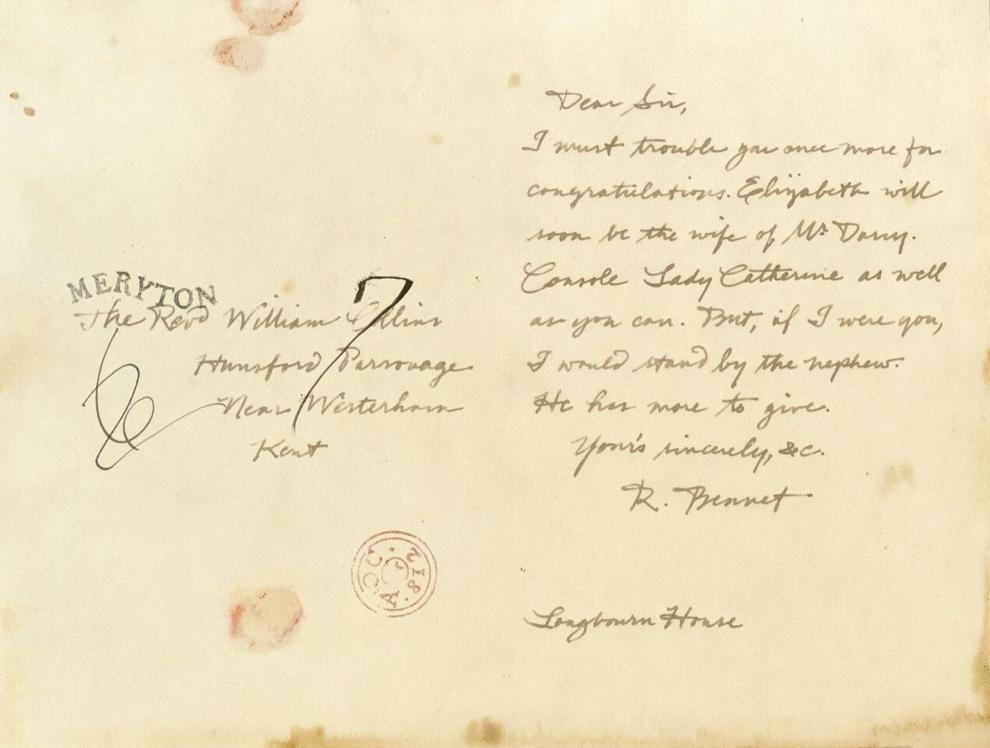 MERYTON
The Revd William Collins
Hunsford Parsonage
Near Westerham
Kent
7
Dear Sir,
I must trouble you once more for
congratulations. Elizabeth will
soon be the wife of Mr Darcy.
Console Lady Catherine as well
as you can. But, if I were you,
I would stand by the nephew.
He has more to give.
Your's sincerely, &c.
R. Bennet
Longbourn House